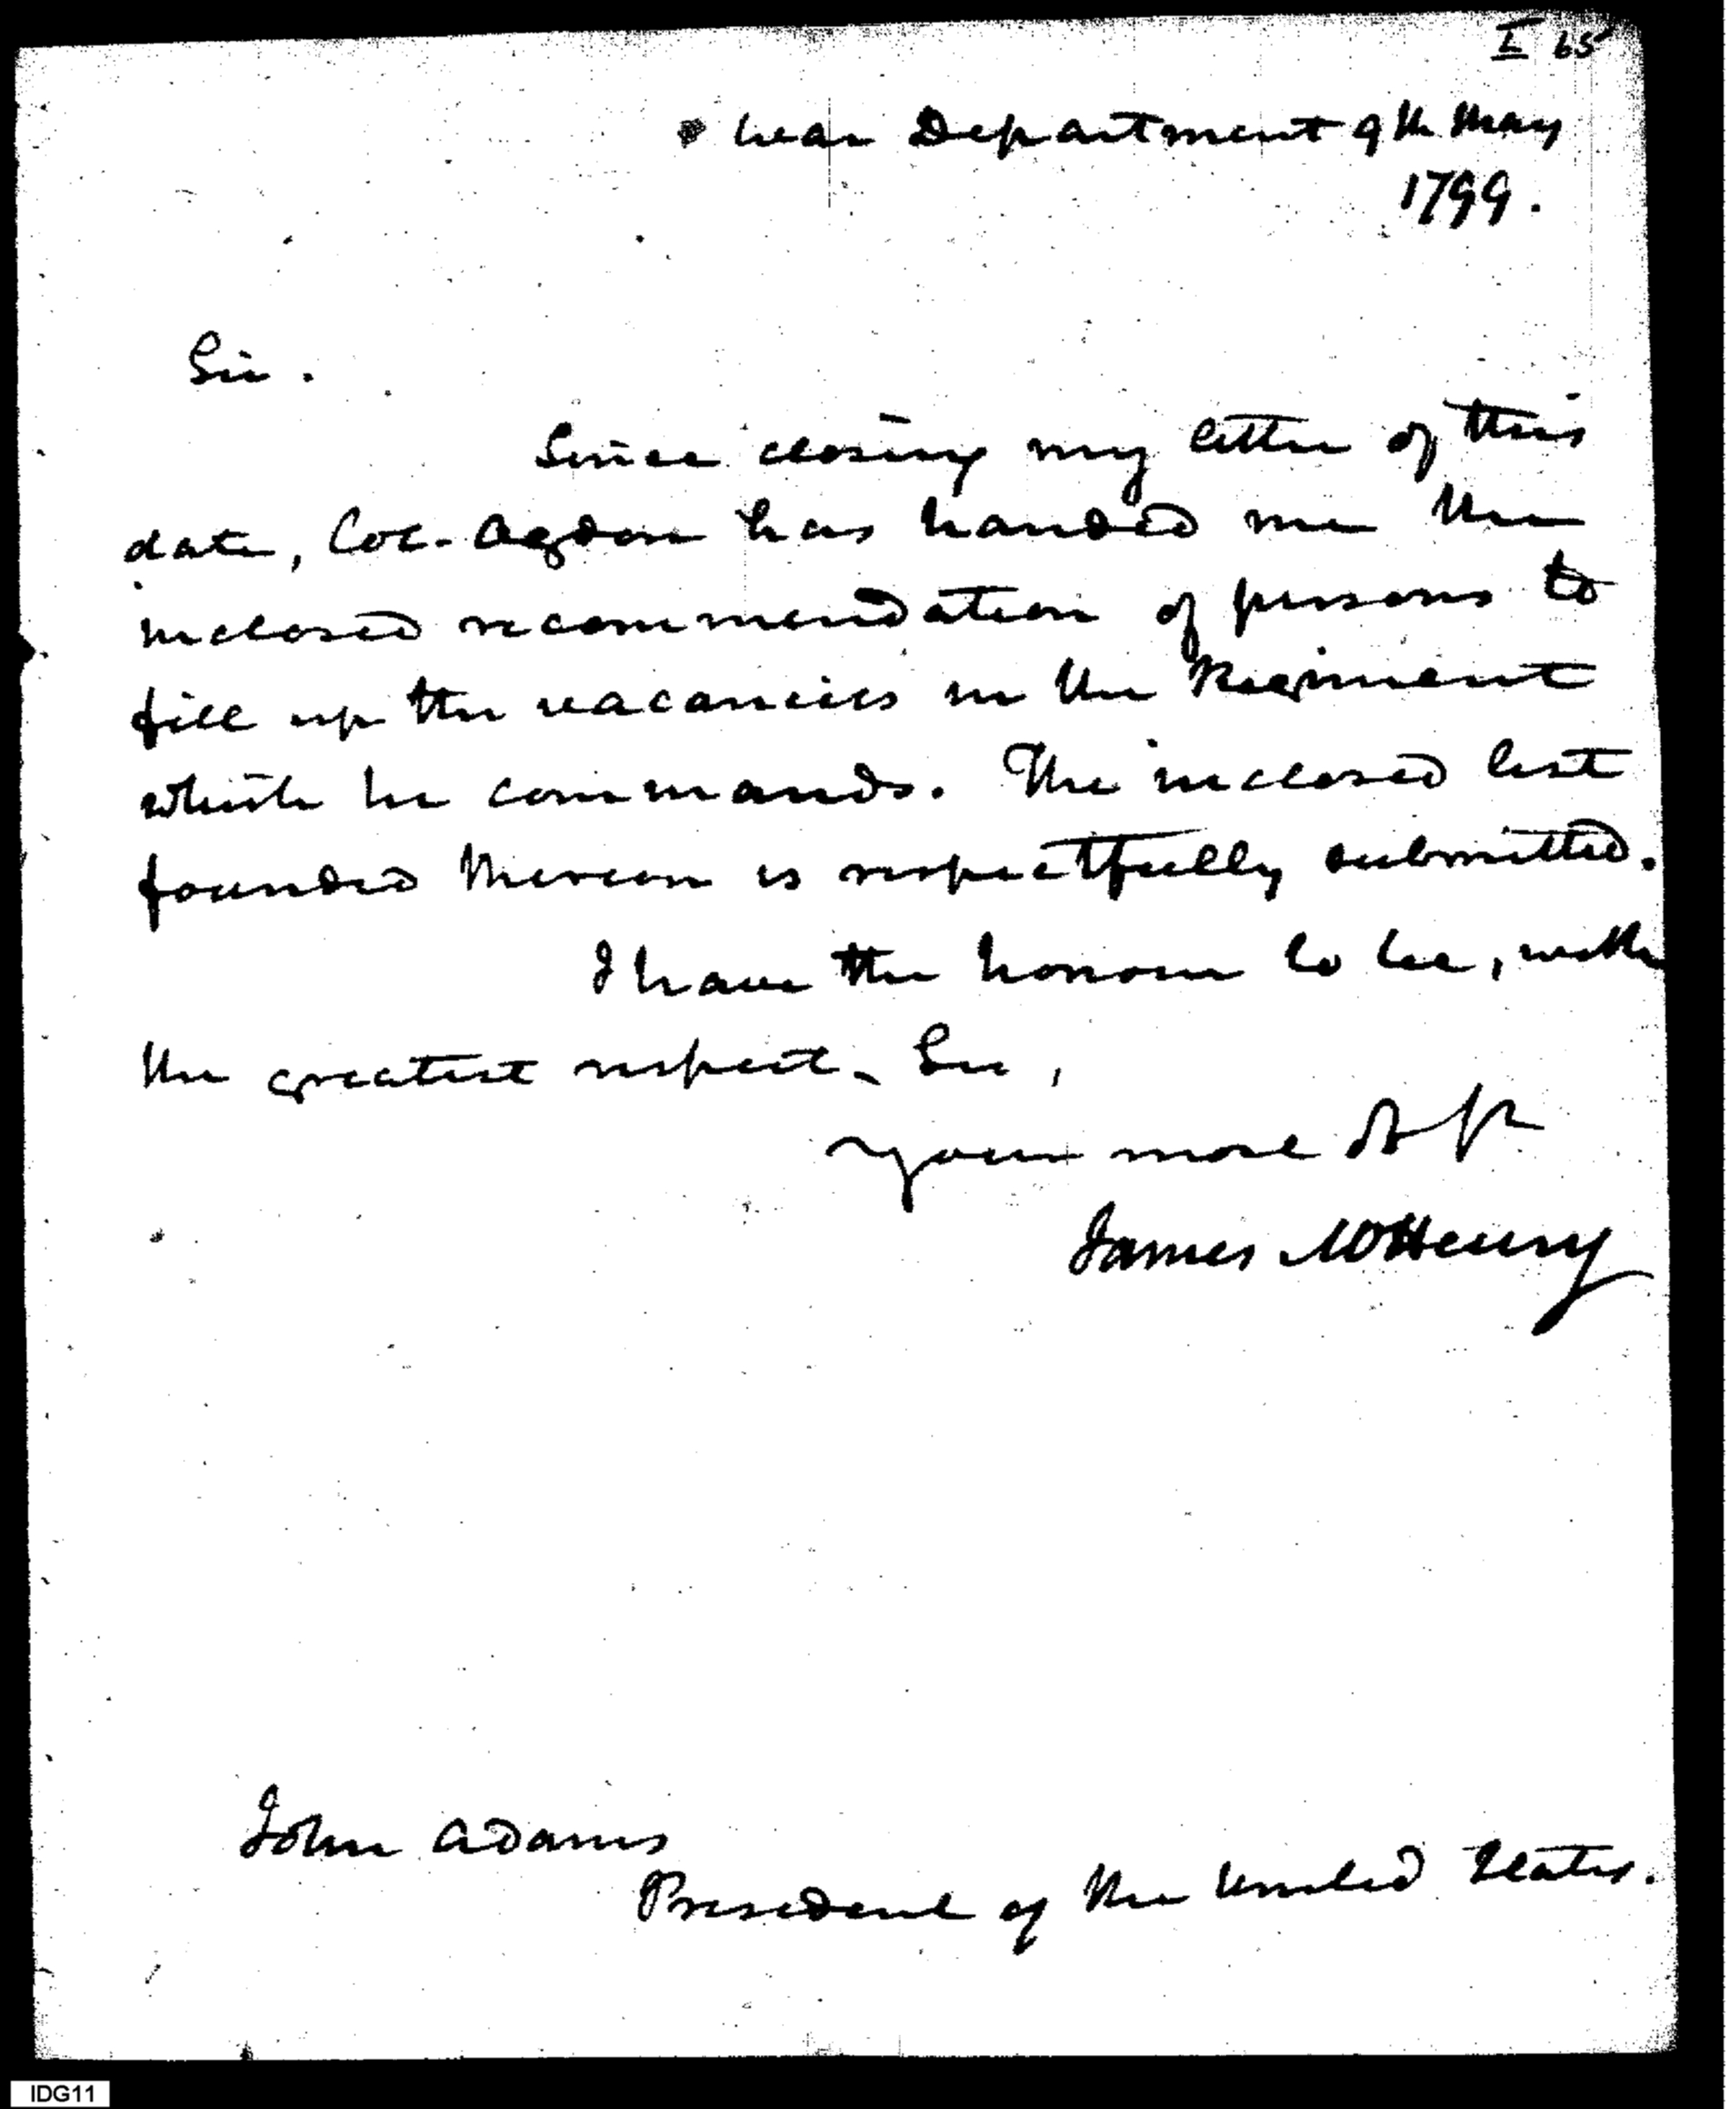 I 65
War Department 9th May
1799.
Sir.
Since closing my letter of this
date, Col. Ogdon has handed me the
inclosed recommendation of persons to
fill up the vacancies in the Regiment
which he commands. The inclosed list
founded thereon is respectfully submitted.
I have the honour to be, with
the greatest respect, Sir,
your most
James McHenry
John Adams
President of the United States.
IDG11